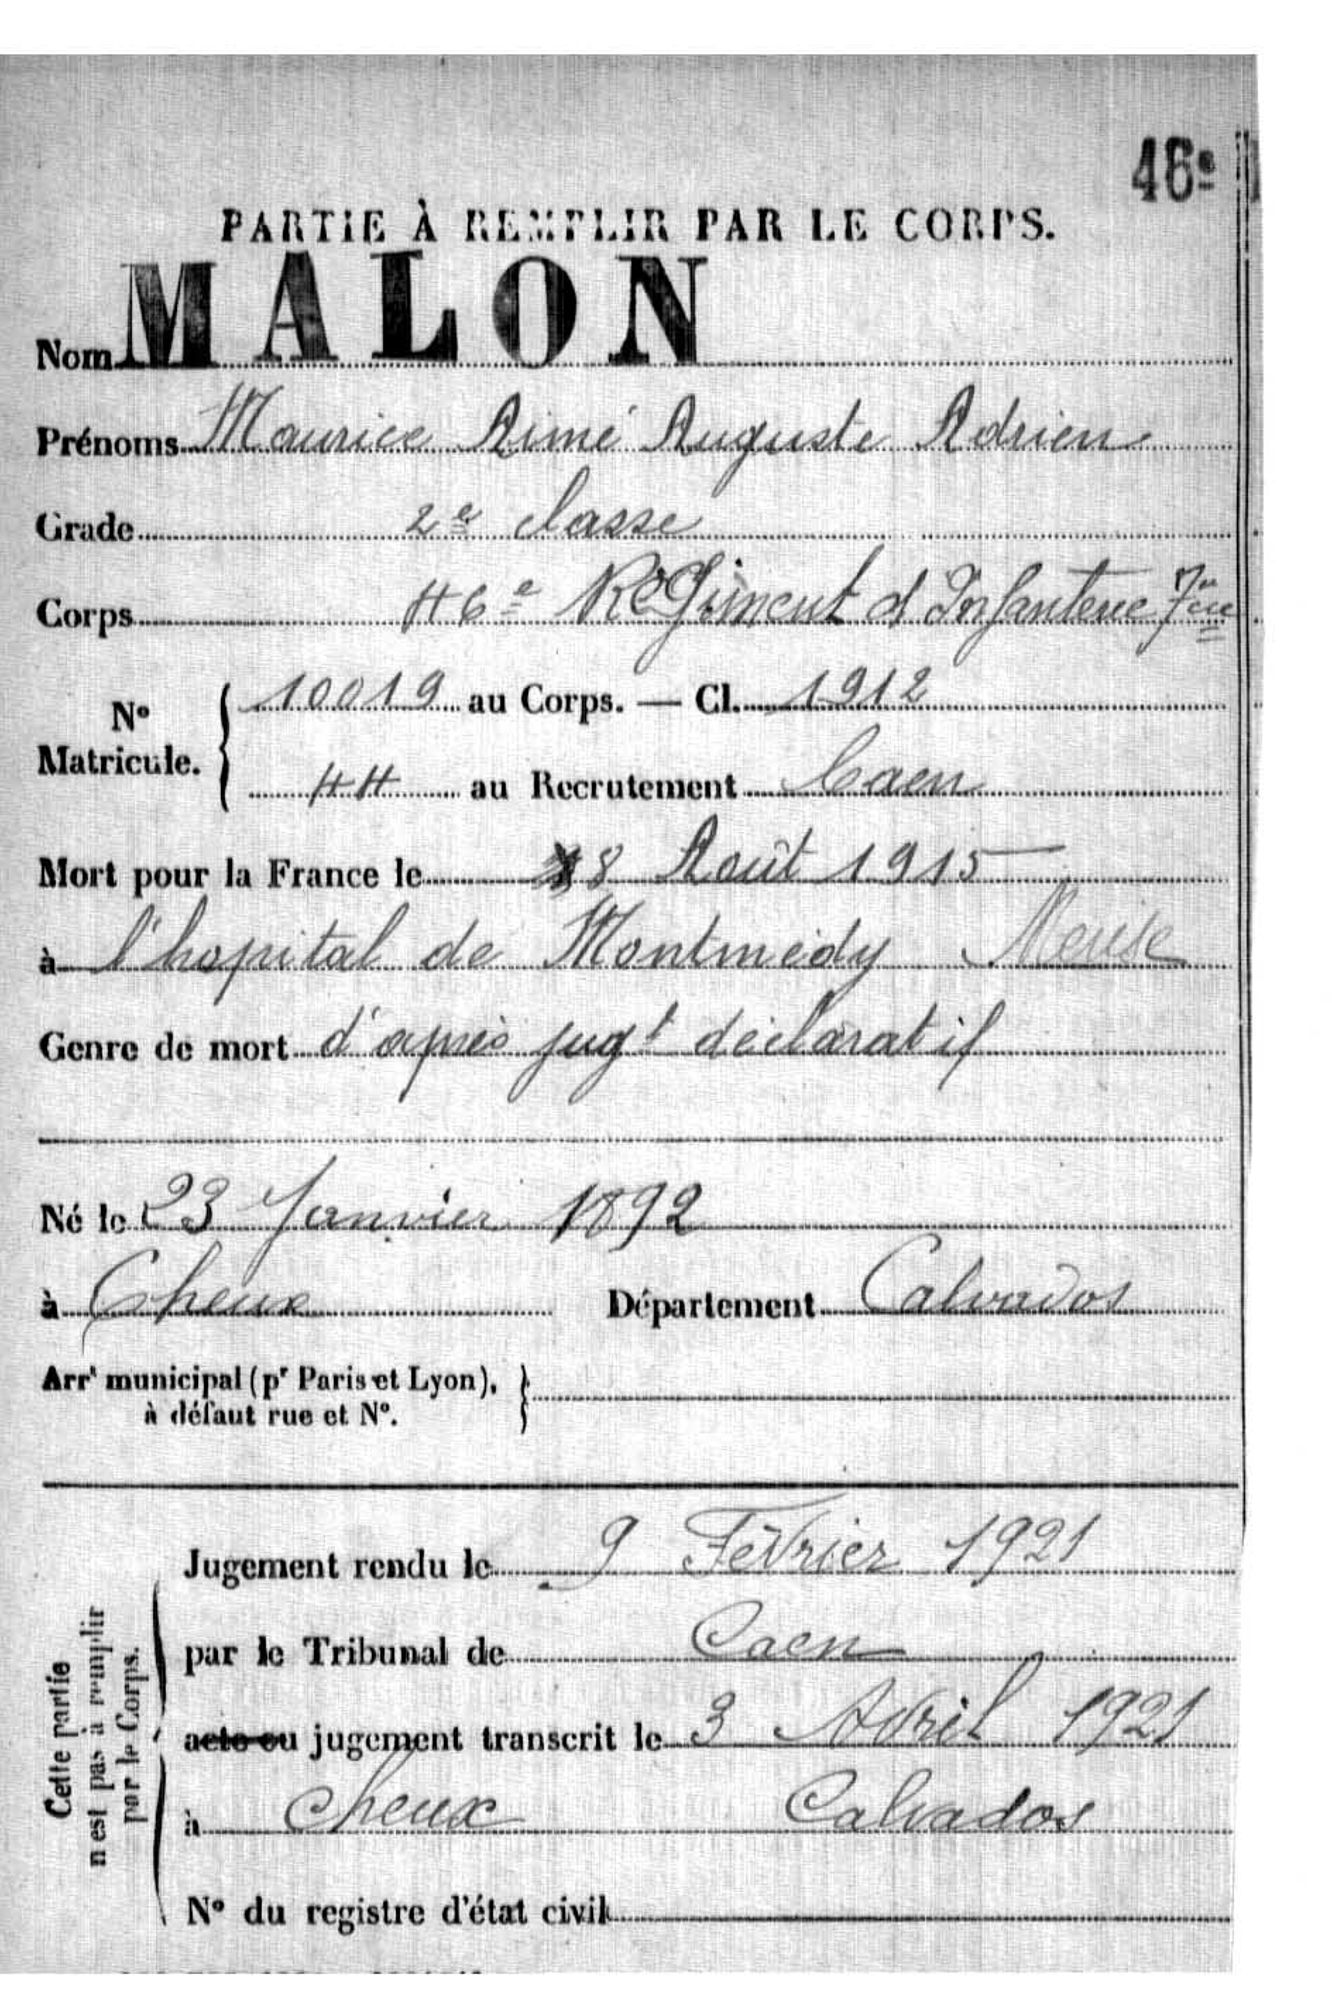 46e
PARTIE À REMPLIR PAR LE CORPS.
Nom MALON
Prénoms Maurice Aimé Auguste Adrien
Grade 2e classe
Corps 46e Régiment d'Infanterie
No Matricule. 10019 au Corps. — Cl. 1912
44 au Recrutement Caen
Mort pour la France le 8 Août 1915
à l'hopital de Montmédy Meuse
Genre de mort d'après jugt déclaratif
Né le 23 Janvier 1892
à Cheux Département Calvados
Arrt municipal (pr Paris et Lyon),
à défaut rue et No.
Cette partie
n'est pas à remplir
par le Corps.
Jugement rendu le 9 Février 1921
par le Tribunal de Caen
acte ou jugement transcrit le 3 Avril 1921
à Cheux Calvados
No du registre d'état civil